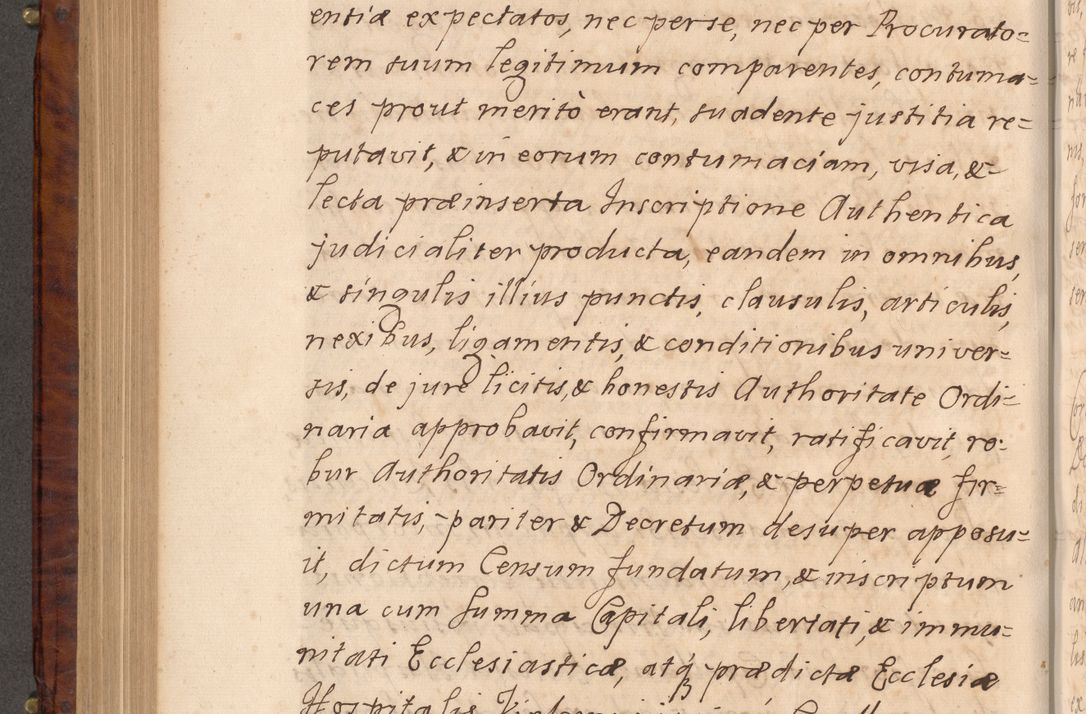 entiæ expectatos, nec per se, nec per Procurato=
rem suum legitimum comparentes, contuma=
ces prout meritò erant, suadente justitia re=
putavit, & in eorum contumaciam, visa, &
lecta præinserta Inscriptione Authentica
judicialiter producta, eandem in omnibus,
& singulis illius punctis, clausulis, articulis,
nexibus, ligamentis, & conditionibus univer=
sis, de jure licitis, & honestis Authoritate Ordi=
naria approbavit, confirmavit, ratificavit, ro=
bur Authoritatis Ordinariæ, & perpetuæ fir=
mitatis, pariter & Decretum desuper apposu=
it, dictum Censum fundatum, & inscriptum
una cum summa Capitali, libertati, & immu=
nitati Ecclesiasticæ, atq3 prædictæ Ecclesiæ
Hospitalis